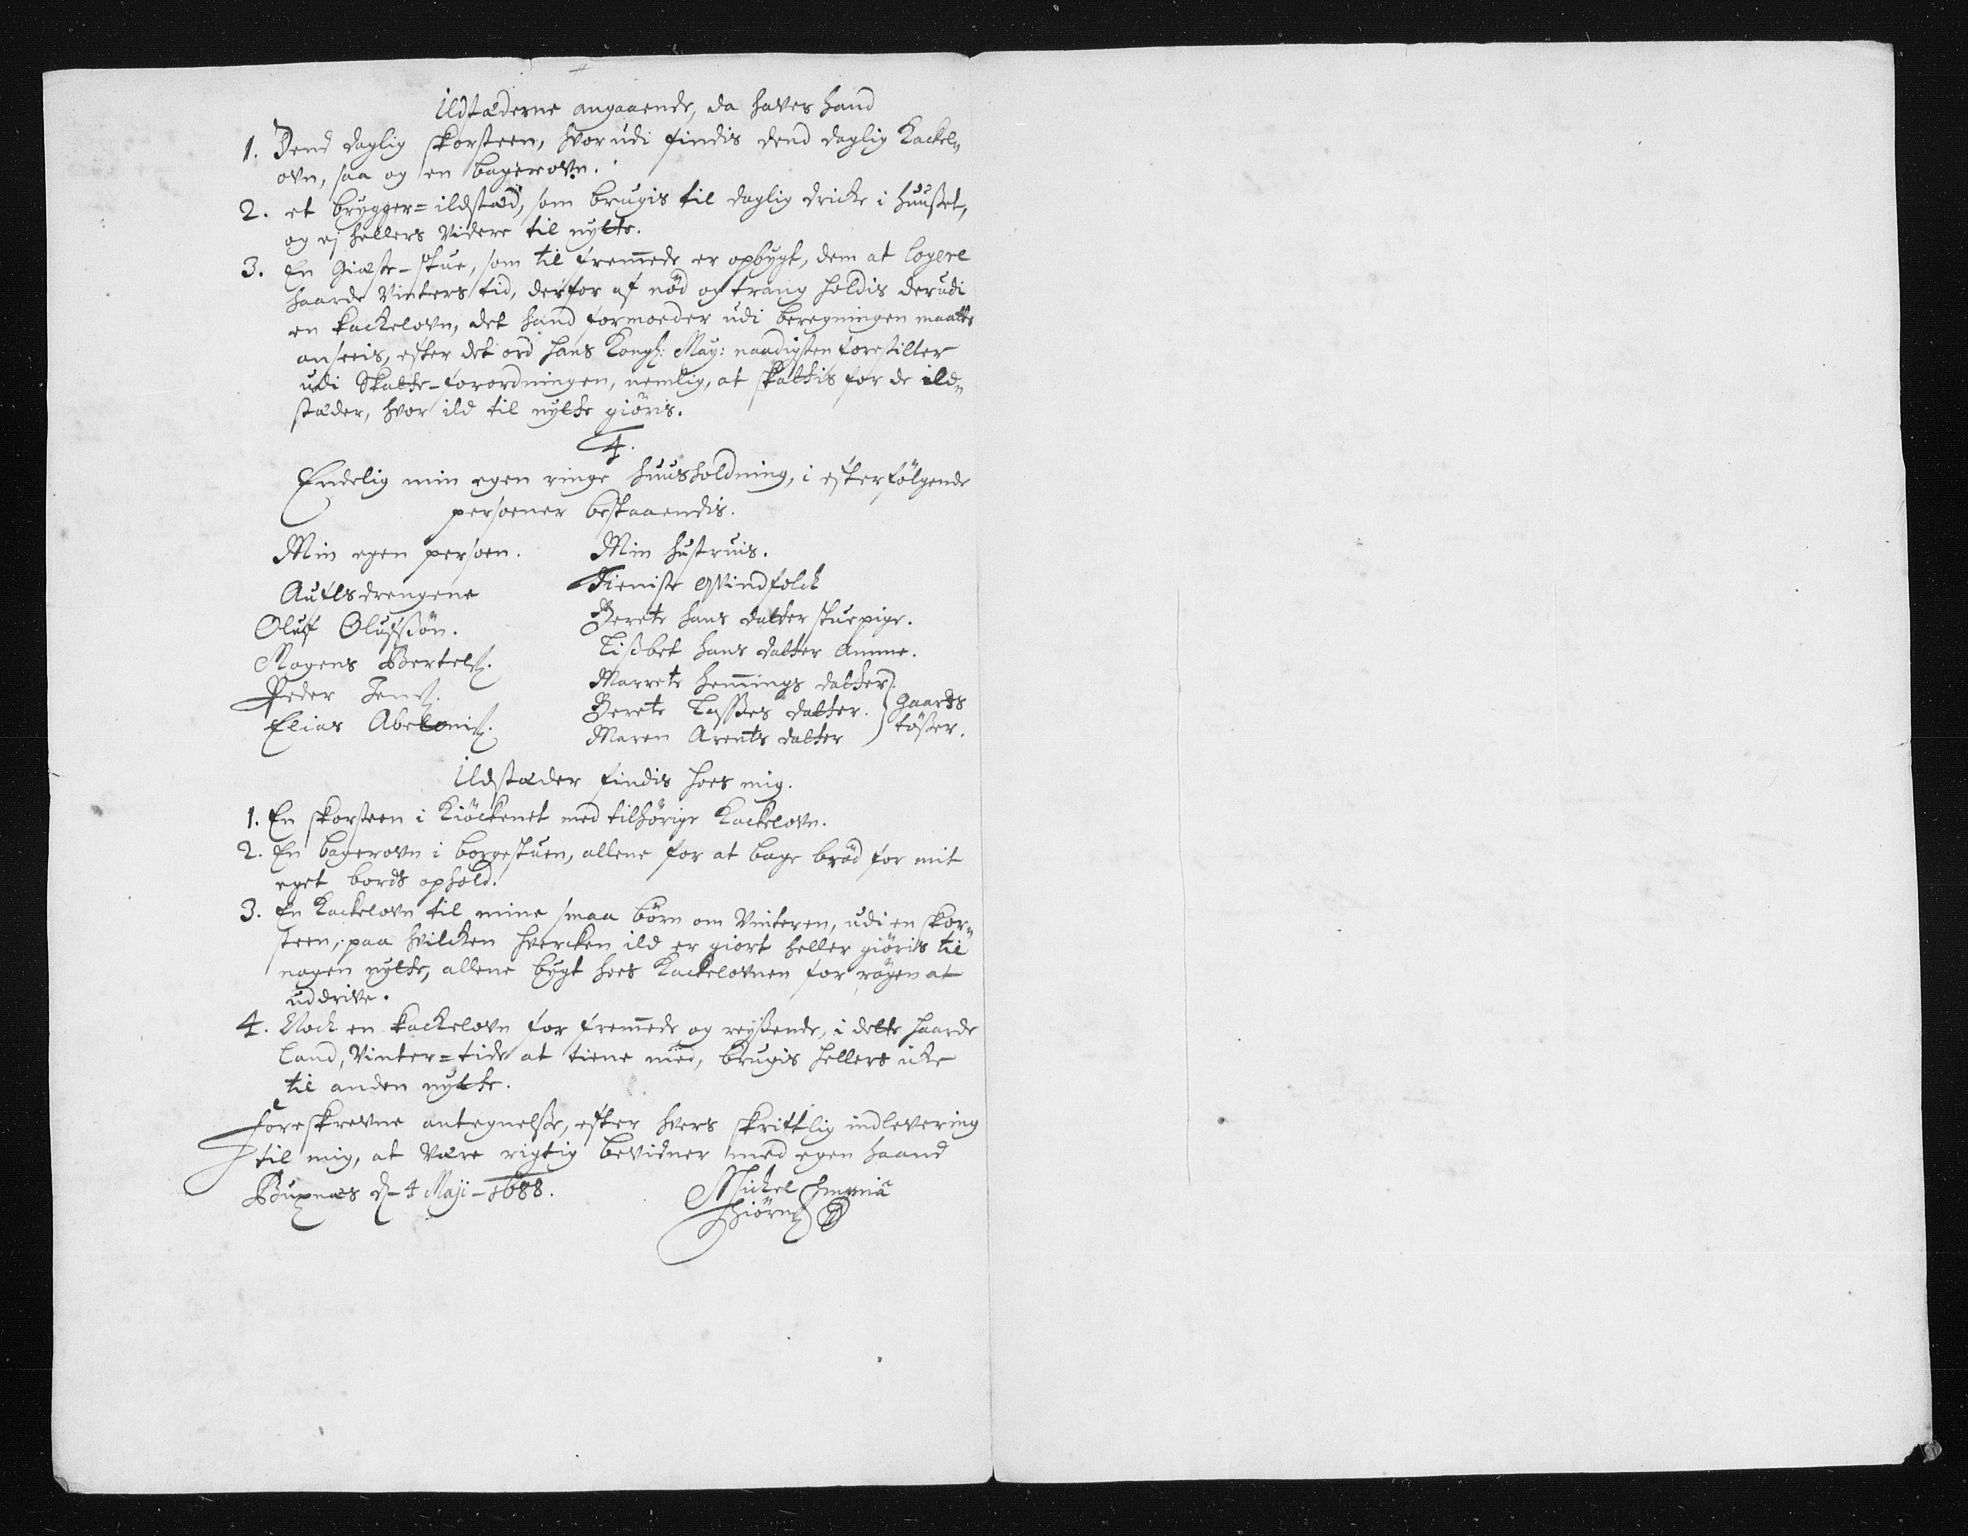 Ildstæderne angaaende, da haves hand
1. Dend daglig skorsteen, hvorudi findis dend daglig Kackel„
ovn, saa og en bagerovn.
2. et brygger=ildstæd, som brugis til daglig dricke i huußet,
og ej hellers videre til nytte.
3. En Giæste-stue, som til fremmede er opbygt, dem at logere
haarde Vinters tid, derfor af nöd og trang holdis derudi
en kackelovn, det hand formoeder udi beregningen maatte
anseeis, efter det ord Hans Kongl: May: naadigsten forestilter
udi Skatte-forordningen, nemlig, at skattis for de ild„
stæder, hvor ild til nytte giöris.
4.
Endelig min egen ringe huusholdning, i efterfölgende
persoener bestaaendis.
Min egen persoen. Min hustruis.
Aufls drengene Tieniste qvindfolck
Oluf Olufssön. Berete Hans datter stuepige.
Mogens Bertels. Lisbet Hans datter Amme.
Peder Jens. Marrete Hemmings datter.
Elias Abelonis. Berete Lasses datter. Gaards
Maren Arents datter tösser.
Ildstæder findis hoes mig.
1. En skorsteen i Kiöckenet med tilhörige Kackelovn.
2. En bagerovn i borgestuen, allene for at bage bröd for mit
eget bords ophold.
3. En Kackelovn til mine smaa börn om Vinteren, udi en skor„
steen, paa hvilcken hvercken ild er giort heller giöris til
nogen nytte, allene bygt hoes Kackelovnen for rögen at
uddrive.
4. Noch en kackelovn for fremmede og reyßende, i dette haarde
land, Vinter=tide at tiene med, brugis hellers icke
til anden nytte.
Foreskrevne antegnelse, efter hvers skriftlig indlevering
til mig, at være rigtig bevidner med egen haand
Buxnæs d. 4 Maji 1688. Mickel